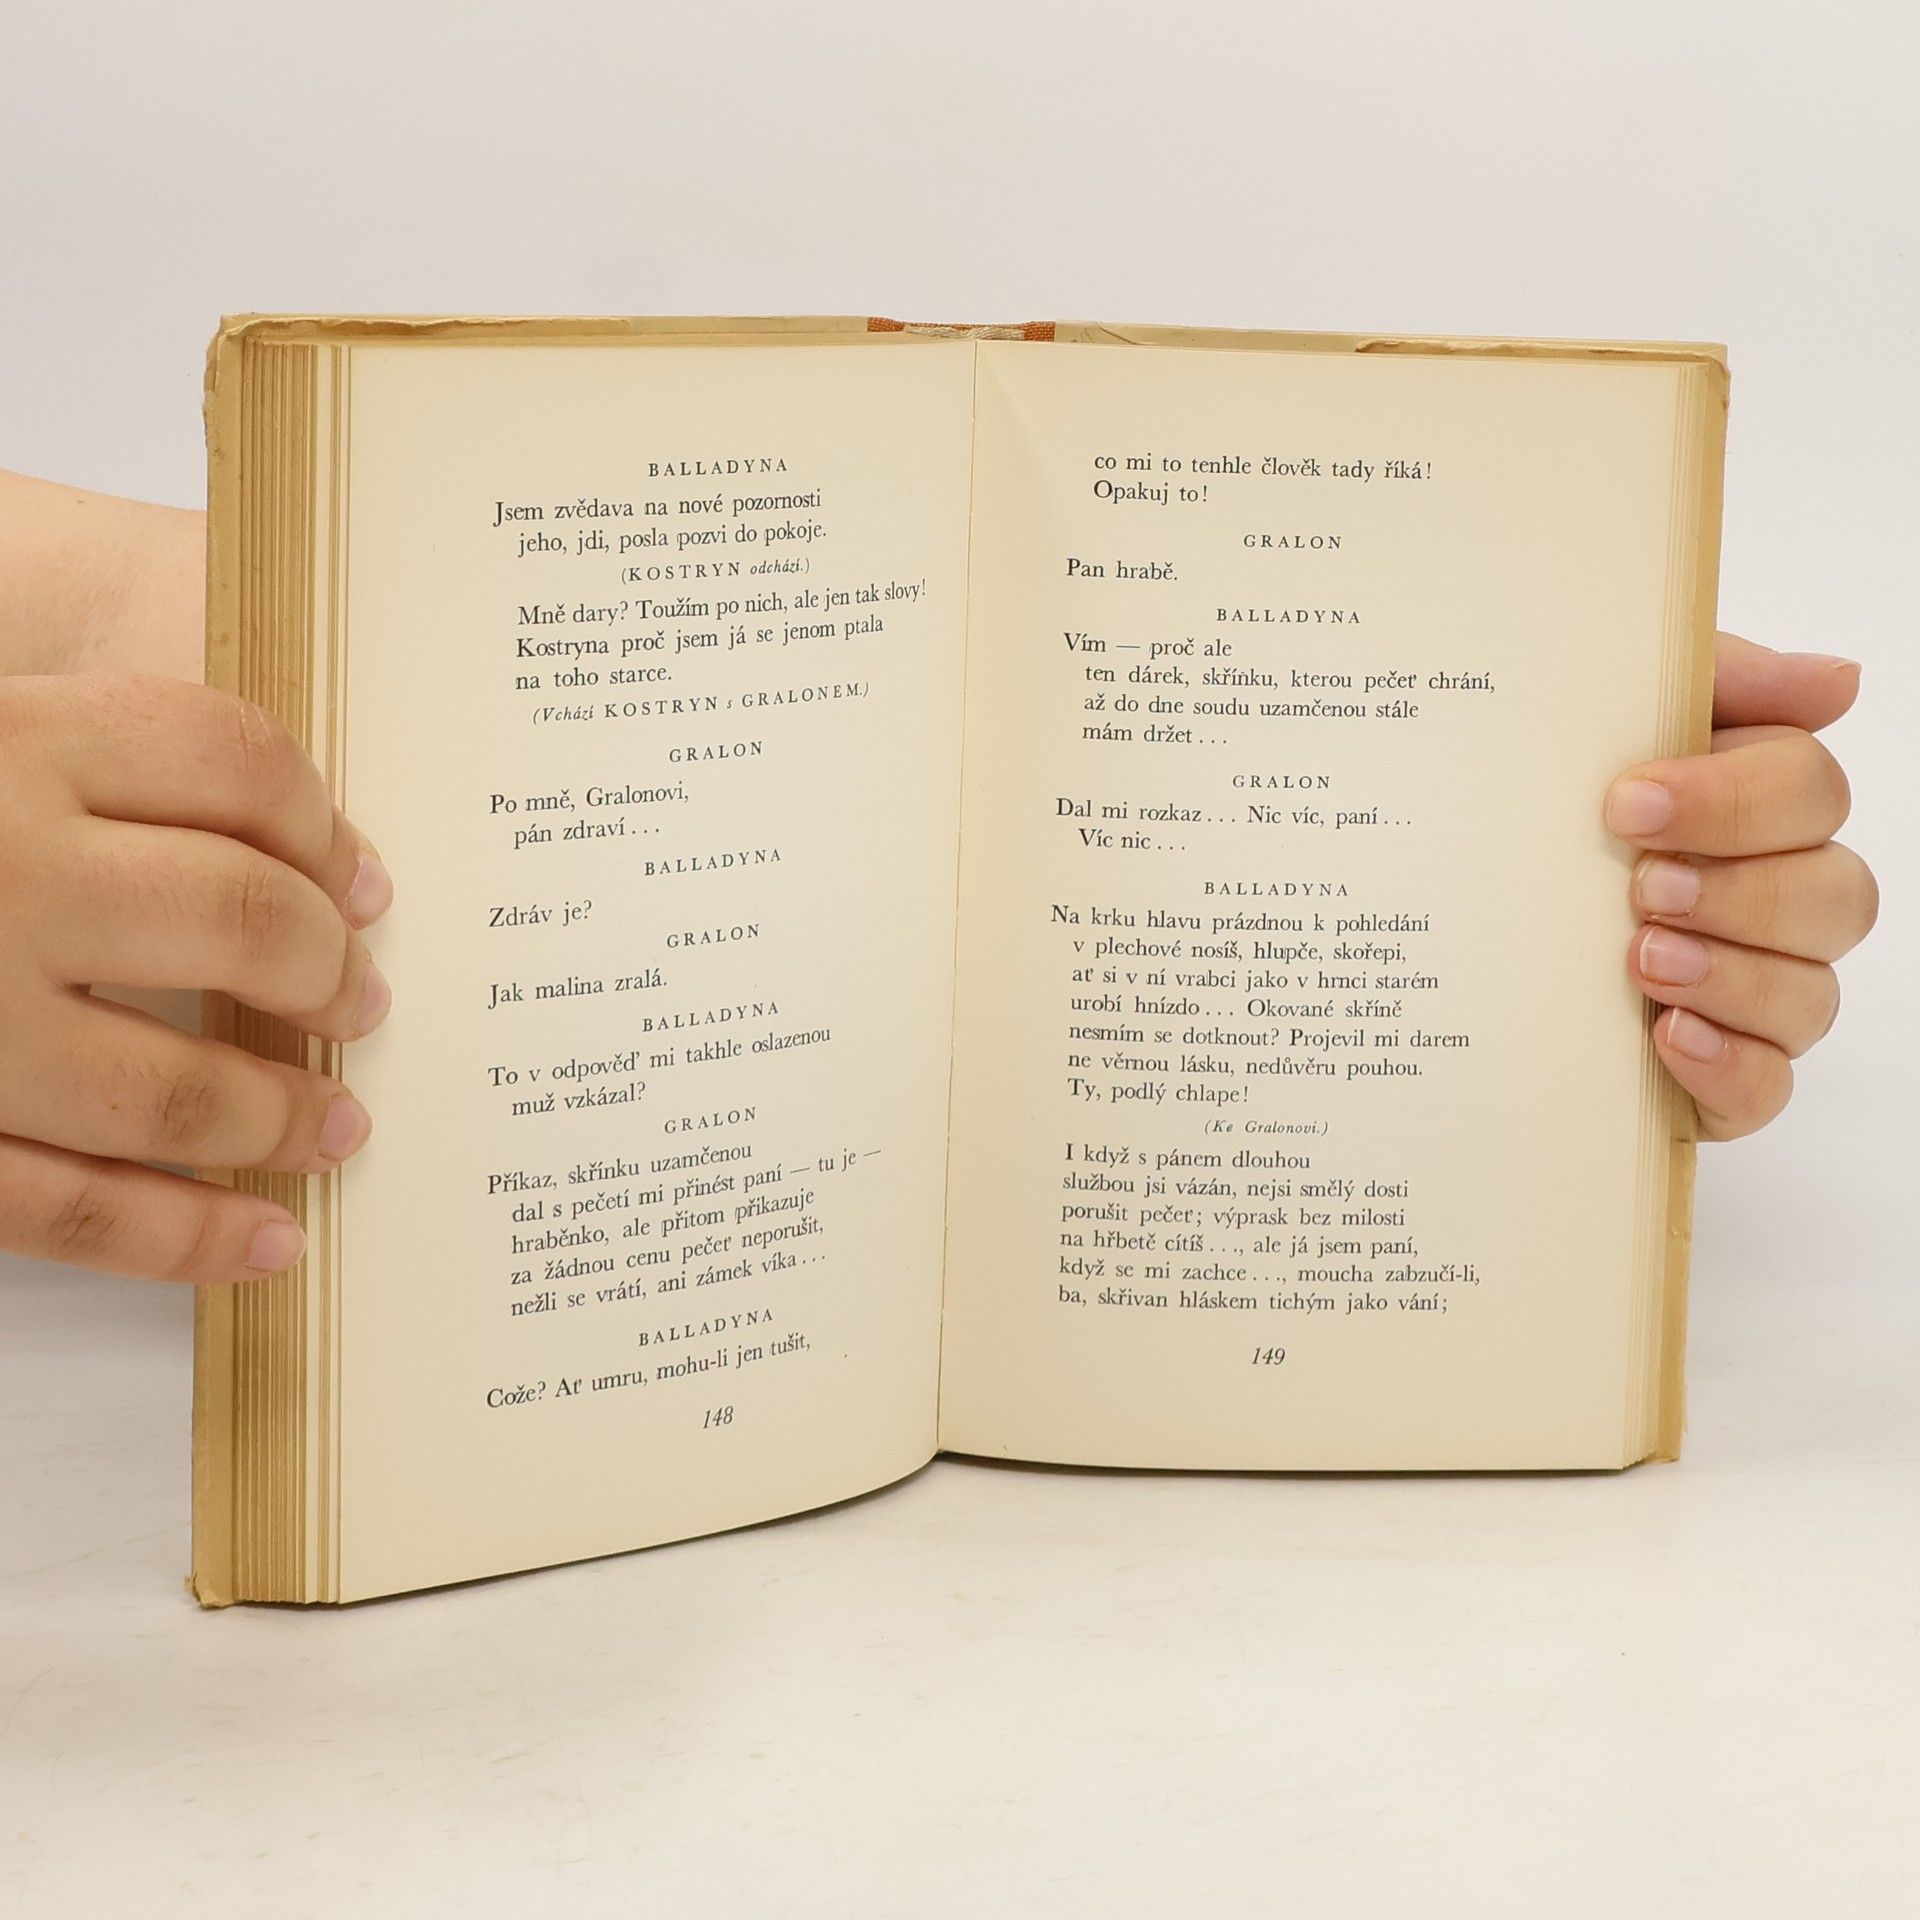 BALLADYNA
Jsem zvědava na nové pozornosti
jeho, jdi, posla pozvi do pokoje.
(KOSTRYN odchází.)
Mně dary? Toužím po nich, ale jen tak slovy!
Kostryna proč jsem já se jenom ptala
na toho starce.
(Vchází KOSTRYN s GRALONEM.)
GRALON
Po mně, Gralonovi,
pán zdraví...
BALLADYNA
Zdráv je?
GRALON
Jak malina zralá.
BALLADYNA
To v odpověď mi takhle oslazenou
muž vzkázal?
GRALON
Příkaz, skřínku uzamčenou
dal s pečetí mi přinést paní — tu je —
hraběnko, ale přitom přikazuje
za žádnou cenu pečeť neporušit,
nežli se vrátí, ani zámek víka...
BALLADYNA
Cože? Ať umru, mohu-li jen tušit,
148
co mi to tenhle člověk tady říká!
Opakuj to!
GRALON
Pan hrabě.
BALLADYNA
Vím — proč ale
ten dárek, skřínku, kterou pečeť chrání,
až do dne soudu uzamčenou stále
mám držet...
GRALON
Dal mi rozkaz... Nic víc, paní...
Víc nic...
BALLADYNA
Na krku hlavu prázdnou k pohledání
v plechové nosíš, hlupče, skořepi,
ať si v ní vrabci jako v hrnci starém
urobí hnízdo... Okované skříně
nesmím se dotknout? Projevil mi darem
ne věrnou lásku, nedůvěru pouhou.
Ty, podlý chlape!
(Ke Gralonovi.)
I když s pánem dlouhou
službou jsi vázán, nejsi smělý dosti
porušit pečeť; výprask bez milosti
na hřbetě cítíš..., ale já jsem paní,
když se mi zachce..., moucha zabzučí-li,
ba, skřivan hláskem tichým jako vání;
149